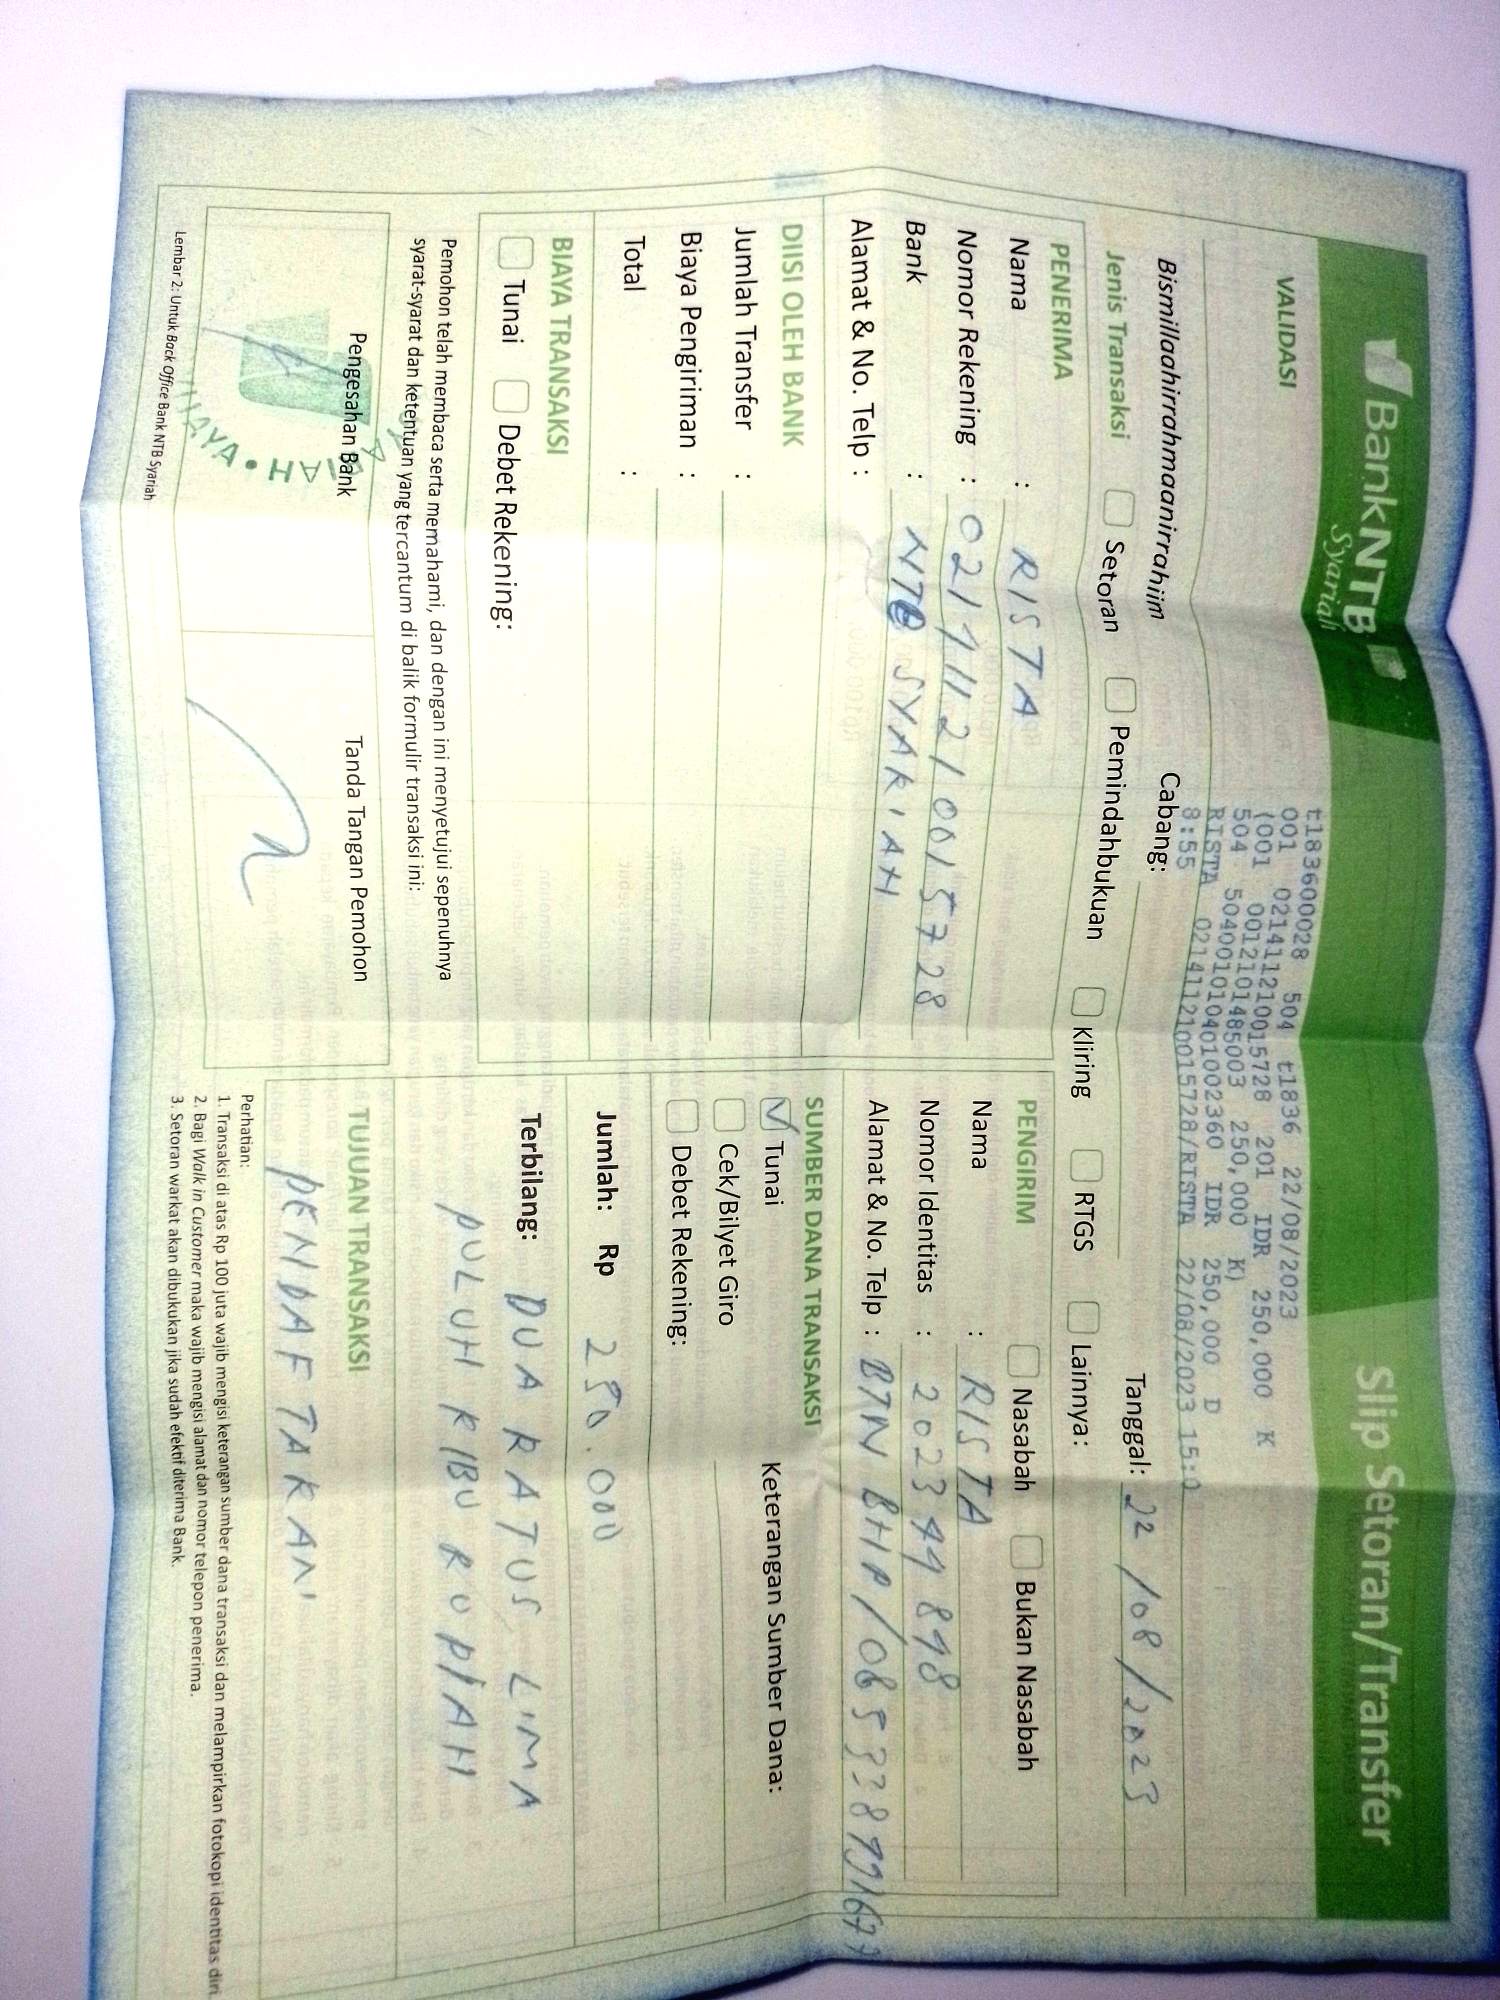 BankNTB Syariah
Slip Setoran/Transfer
VALIDASI
t183600028 504 t1836 22/08/2023
001 021411210015728 201 IDR 250,000 K
(001 0012101485003 250,000 K)
504 504001010401002360 IDR 250,000 D
RISTA 021411210015728/RISTA 22/08/2023 15:0
8:55
Bismillaahirrahmaanirrahiim
Cabang:
Tanggal: 22/08/2023
Jenis Transaksi Setoran Pemindahbukuan Kliring RTGS Lainnya:
PENERIMA
Nama : RISTA
Nomor Rekening : 021411210015728
Bank : NTB SYARIAH
Alamat & No. Telp :
DIISI OLEH BANK
Jumlah Transfer :
Biaya Pengiriman :
Total :
BIAYA TRANSAKSI
Tunai Debet Rekening:
Pemohon telah membaca serta memahami, dan dengan ini menyetujui sepenuhnya
syarat-syarat dan ketentuan yang tercantum di balik formulir transaksi ini:
Pengesahan Bank
Tanda Tangan Pemohon
Lembar 2: Untuk Back Office Bank NTB Syariah
PENGIRIM Nasabah Bukan Nasabah
Nama : RISTA
Nomor Identitas : 202349898
Alamat & No. Telp : BTN BHP /
SUMBER DANA TRANSAKSI
Tunai Keterangan Sumber Dana:
Cek/Bilyet Giro
Debet Rekening:
Jumlah: Rp 250.000
Terbilang: DUA RATUS LIMA
PULUH RIBU RUPIAH
TUJUAN TRANSAKSI
PENDAFTARAN
Perhatian:
1. Transaksi di atas Rp 100 juta wajib mengisi keterangan sumber dana transaksi dan melampirkan fotokopi identitas diri
2. Bagi Walk in Customer maka wajib mengisi alamat dan nomor telepon penerima.
3. Setoran warkat akan dibukukan jika sudah efektif diterima Bank.